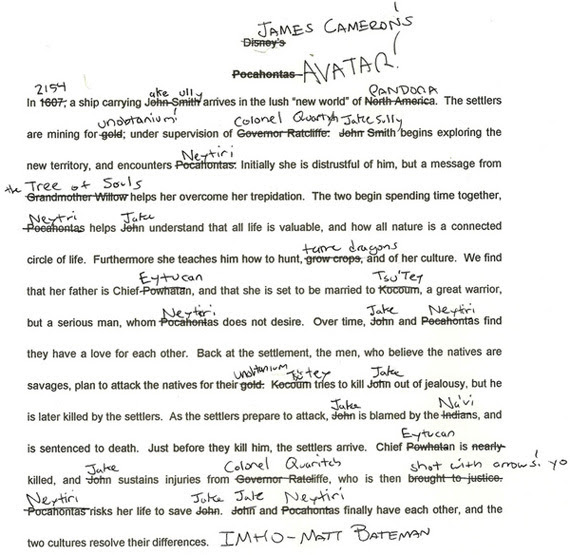 JAMES CAMERON'S
Disney's
Pocahontas AVATAR!
2154 ake ully PANDORA
In 1607, a ship carrying John Smith arrives in the lush "new world" of North America. The settlers
unobtanium! Colonel Quartych Jake Sully
are mining for gold; under supervision of Governor Ratcliffe. John Smith begins exploring the
Neytiri
new territory, and encounters Pocahontas. Initially she is distrustful of him, but a message from
the Tree of Souls
Grandmother Willow helps her overcome her trepidation. The two begin spending time together,
Neytri Jake
Pocahontas helps John understand that all life is valuable, and how all nature is a connected
tame dragons
circle of life. Furthermore she teaches him how to hunt, grow crops, and of her culture. We find
Eytucan Tsu'Tey
that her father is Chief Powhatan, and that she is set to be married to Kocoum, a great warrior,
Neyteri Jake Neytiri
but a serious man, whom Pocahontas does not desire. Over time, John and Pocahontas find
they have a love for each other. Back at the settlement, the men, who believe the natives are
unobtanium Jake
savages, plan to attack the natives for their gold. Kocoum tries to kill John out of jealousy, but he
Jake Na'vi
is later killed by the settlers. As the settlers prepare to attack, John is blamed by the Indians, and
Eytucan
is sentenced to death. Just before they kill him, the settlers arrive. Chief Powhatan is nearly
Jake Colonel Quaritch shot with arrows! yo
killed, and John sustains injuries from Governor Ratcliffe, who is then brought to justice.
Neytiri Jake Jake Neytiri
Pocahontas risks her life to save John. John and Pocahontas finally have each other, and the
two cultures resolve their differences. IMHO - MATT BATEMAN